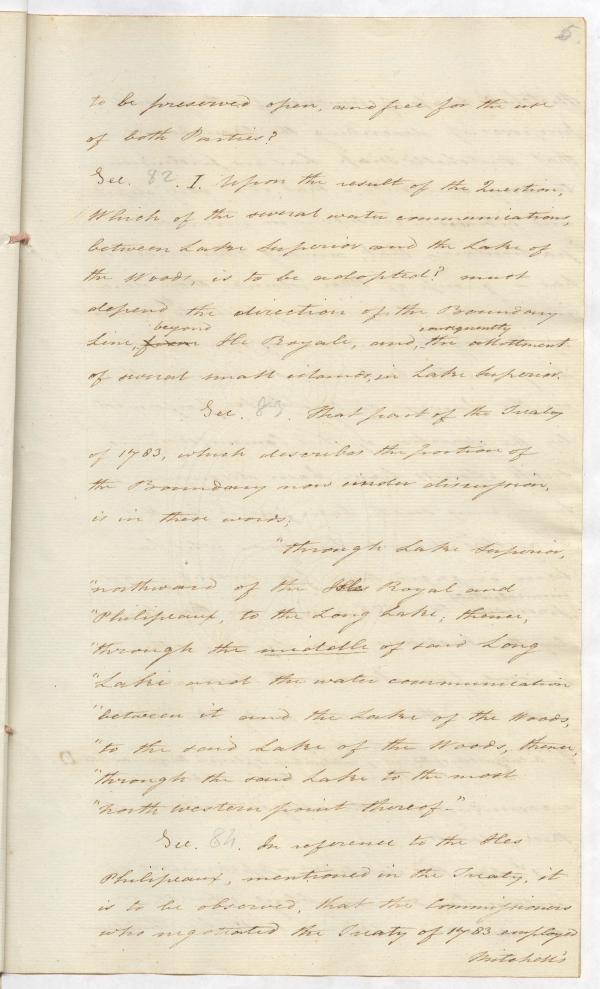 5
to be preserved open, and free for the use
of both Parties?
Sec. 82. I. Upon the result of the Question,
Which of the several water communications,
between Lake Superior and the Lake of
the Woods, is to be adopted? must
depend the direction of the Boundary
beyond consequently
Line, from Ile Royale, and, the allottment
of several small islands, in Lake Superior.
Sec. 83. That part of the Treaty
of 1783, which describes the portion of
the Boundary now under discussion,
is in these words;
"through Lake Superior,
"northward of the Isles Royal and
"Philipeaux, to the Long Lake; thence,
"through the middle of said Long
"Lake and the water communication
"between it and the Lake of the Woods,
"to the said Lake of the Woods, thence,
"through the said Lake to the most
"North western point thereof."
Sec. 84. In reference to the Iles
Philipeaux, mentioned in the Treaty, it
is to be observed, that the Commissioners
who negotiated the Treaty of 1783 employed
Mitchell's